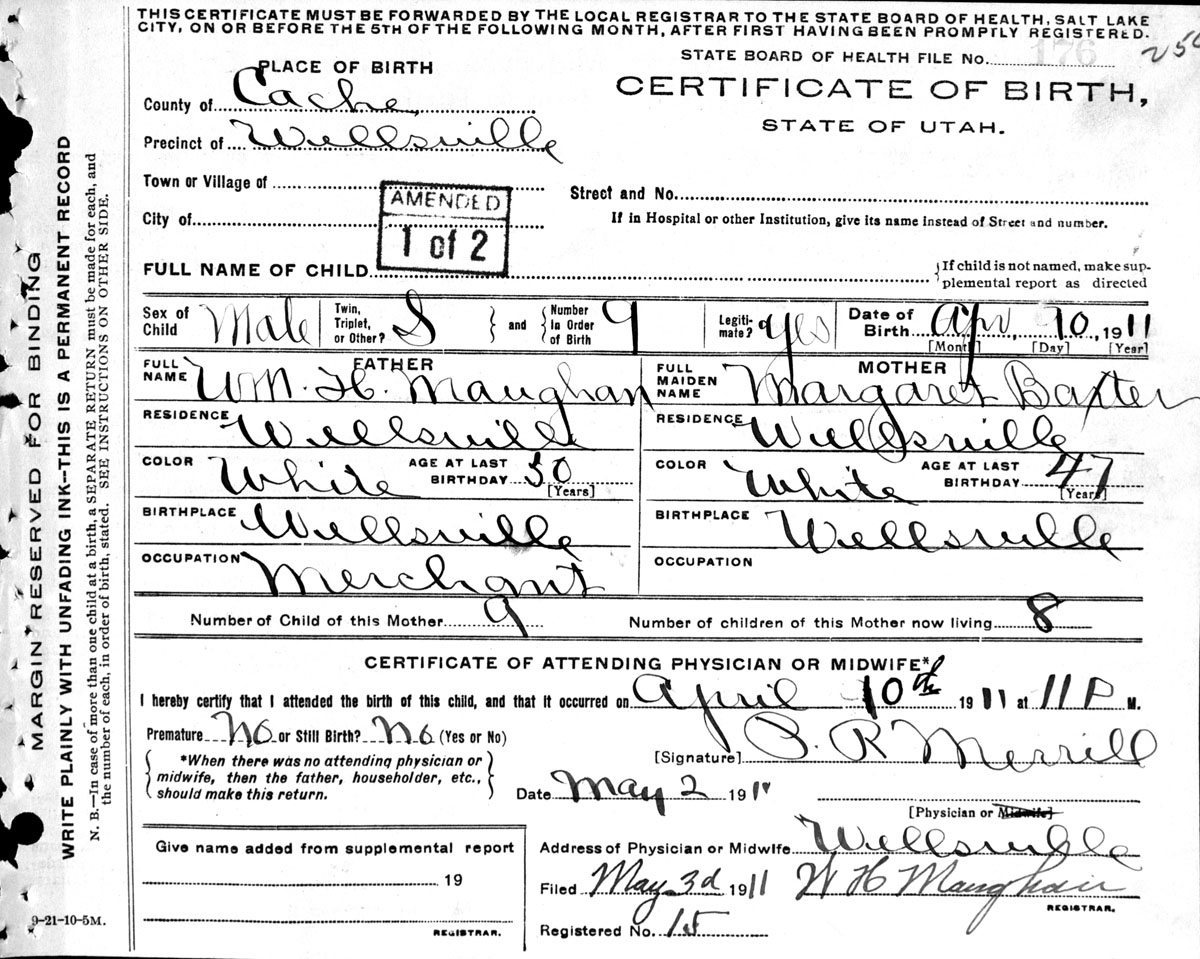 THIS CERTIFICATE MUST BE FORWARDED BY THE LOCAL REGISTRAR TO THE STATE BOARD OF HEALTH, SALT LAKE
CITY, ON OR BEFORE THE 5TH OF THE FOLLOWING MONTH, AFTER FIRST HAVING BEEN PROMPTLY REGISTERED.
STATE BOARD OF HEALTH FILE No. 176
PLACE OF BIRTH
CERTIFICATE OF BIRTH,
STATE OF UTAH.
County of Cache
Precinct of Wellsville
Town or Village of
Street and No.
City of
If in Hospital or other Institution, give its name instead of Street and number.
AMENDED
1 of 2
FULL NAME OF CHILD
{If child is not named, make sup-
plemental report as directed
Sex of Child Male Twin, Triplet, or Other? S } and { Number In Order of Birth 9 Legiti- mate? yes Date of Birth Apr 10, 1911
[Month] [Day] [Year]
FATHER
MOTHER
FULL NAME Wm. H. Maughan
FULL MAIDEN NAME Margaret Baxter
RESIDENCE Wellsville
RESIDENCE Wellsville
COLOR White AGE AT LAST BIRTHDAY 50 [Years]
COLOR White AGE AT LAST BIRTHDAY 47 [Years]
BIRTHPLACE Wellsville
BIRTHPLACE Wellsville
OCCUPATION Merchant
OCCUPATION
Number of Child of this Mother 9 Number of children of this Mother now living 8
CERTIFICATE OF ATTENDING PHYSICIAN OR MIDWIFE*
I hereby certify that I attended the birth of this child, and that it occurred on April 10th 1911 at 11 P M.
Premature No or Still Birth? No (Yes or No)
[Signature] P. R Merrill
*When there was no attending physician or
midwife, then the father, householder, etc.,
should make this return.
Date May 2 1911
[Physician or Midwife]
Give name added from supplemental report
19
REGISTRAR.
Address of Physician or Midwife Wellsville
Filed May 3d 1911 W H Maughan
REGISTRAR.
Registered No. 1st
9-21-10-5M.
MARGIN RESERVED FOR BINDING
WRITE PLAINLY WITH UNFADING INK—THIS IS A PERMANENT RECORD
N. B.—In case of more than one child at a birth, a SEPARATE RETURN must be made for each, and
the number of each, in order of birth, stated. SEE INSTRUCTIONS ON OTHER SIDE.